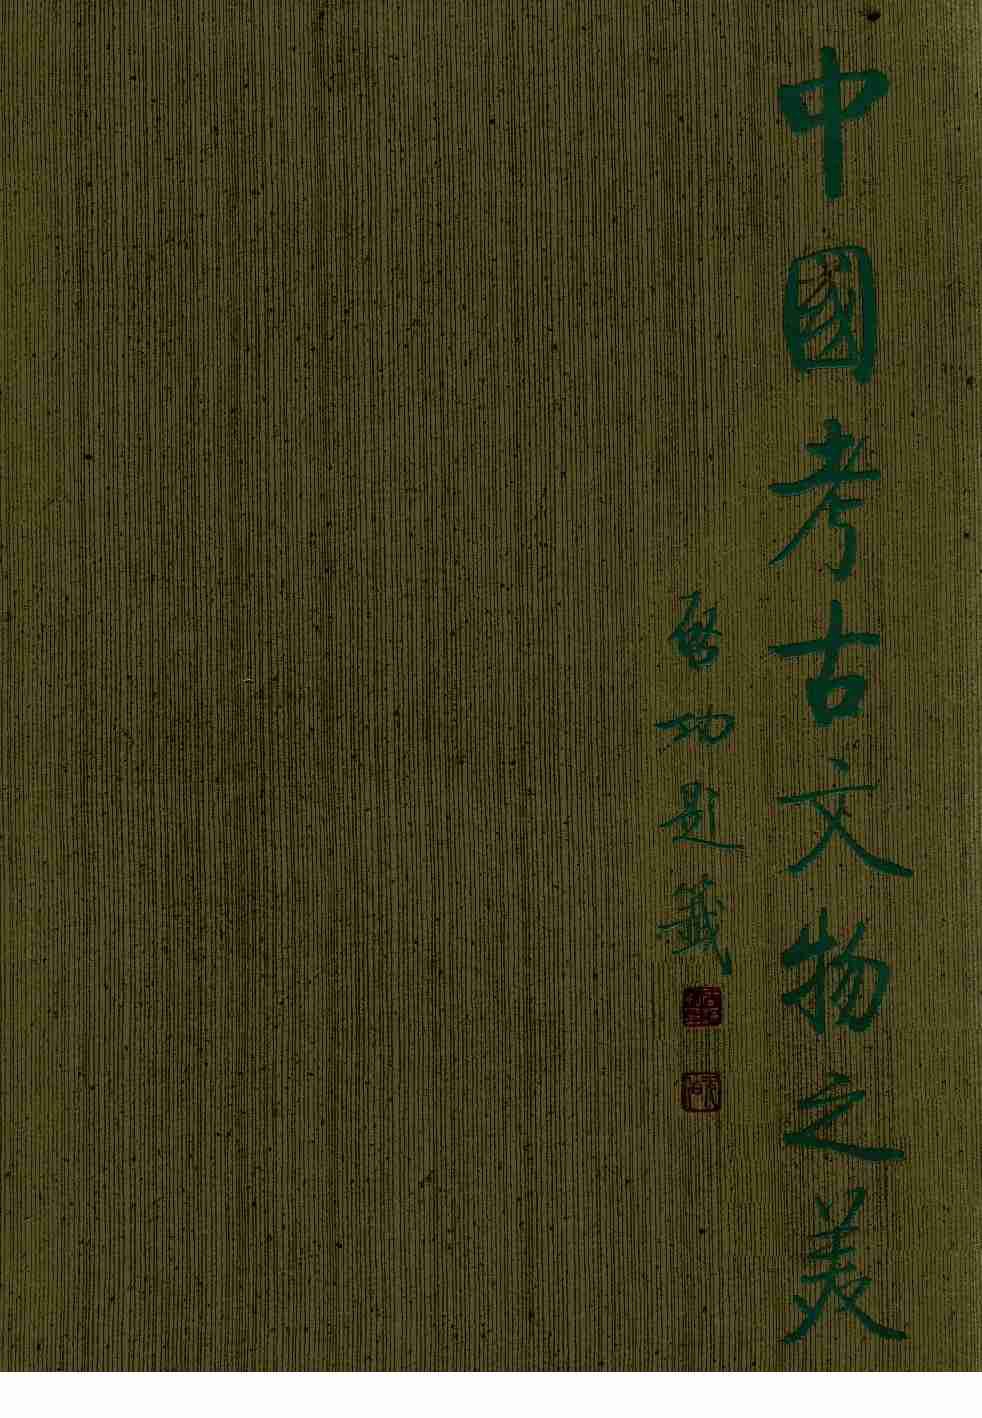 中國考古文物之美
啓功題籤